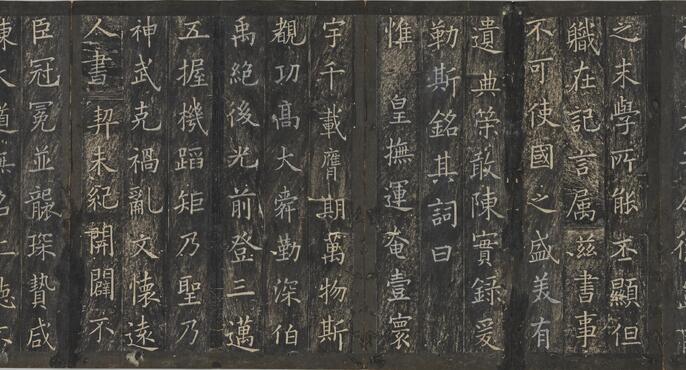 之末學所能丕顯但
職在記言属茲書事
不可使國之盛美有
遺典策敢陳實錄爰
勒斯銘其詞曰
惟 皇撫運奄壹寰
宇千載膺期萬物斯
覩功高大舜勤深伯
禹絶後光前登三邁
五握機蹈矩乃聖乃
神武克禍亂文懷遠
人書契未紀開闢不
臣冠冕並襲琛贄咸
陳大道無名上德不